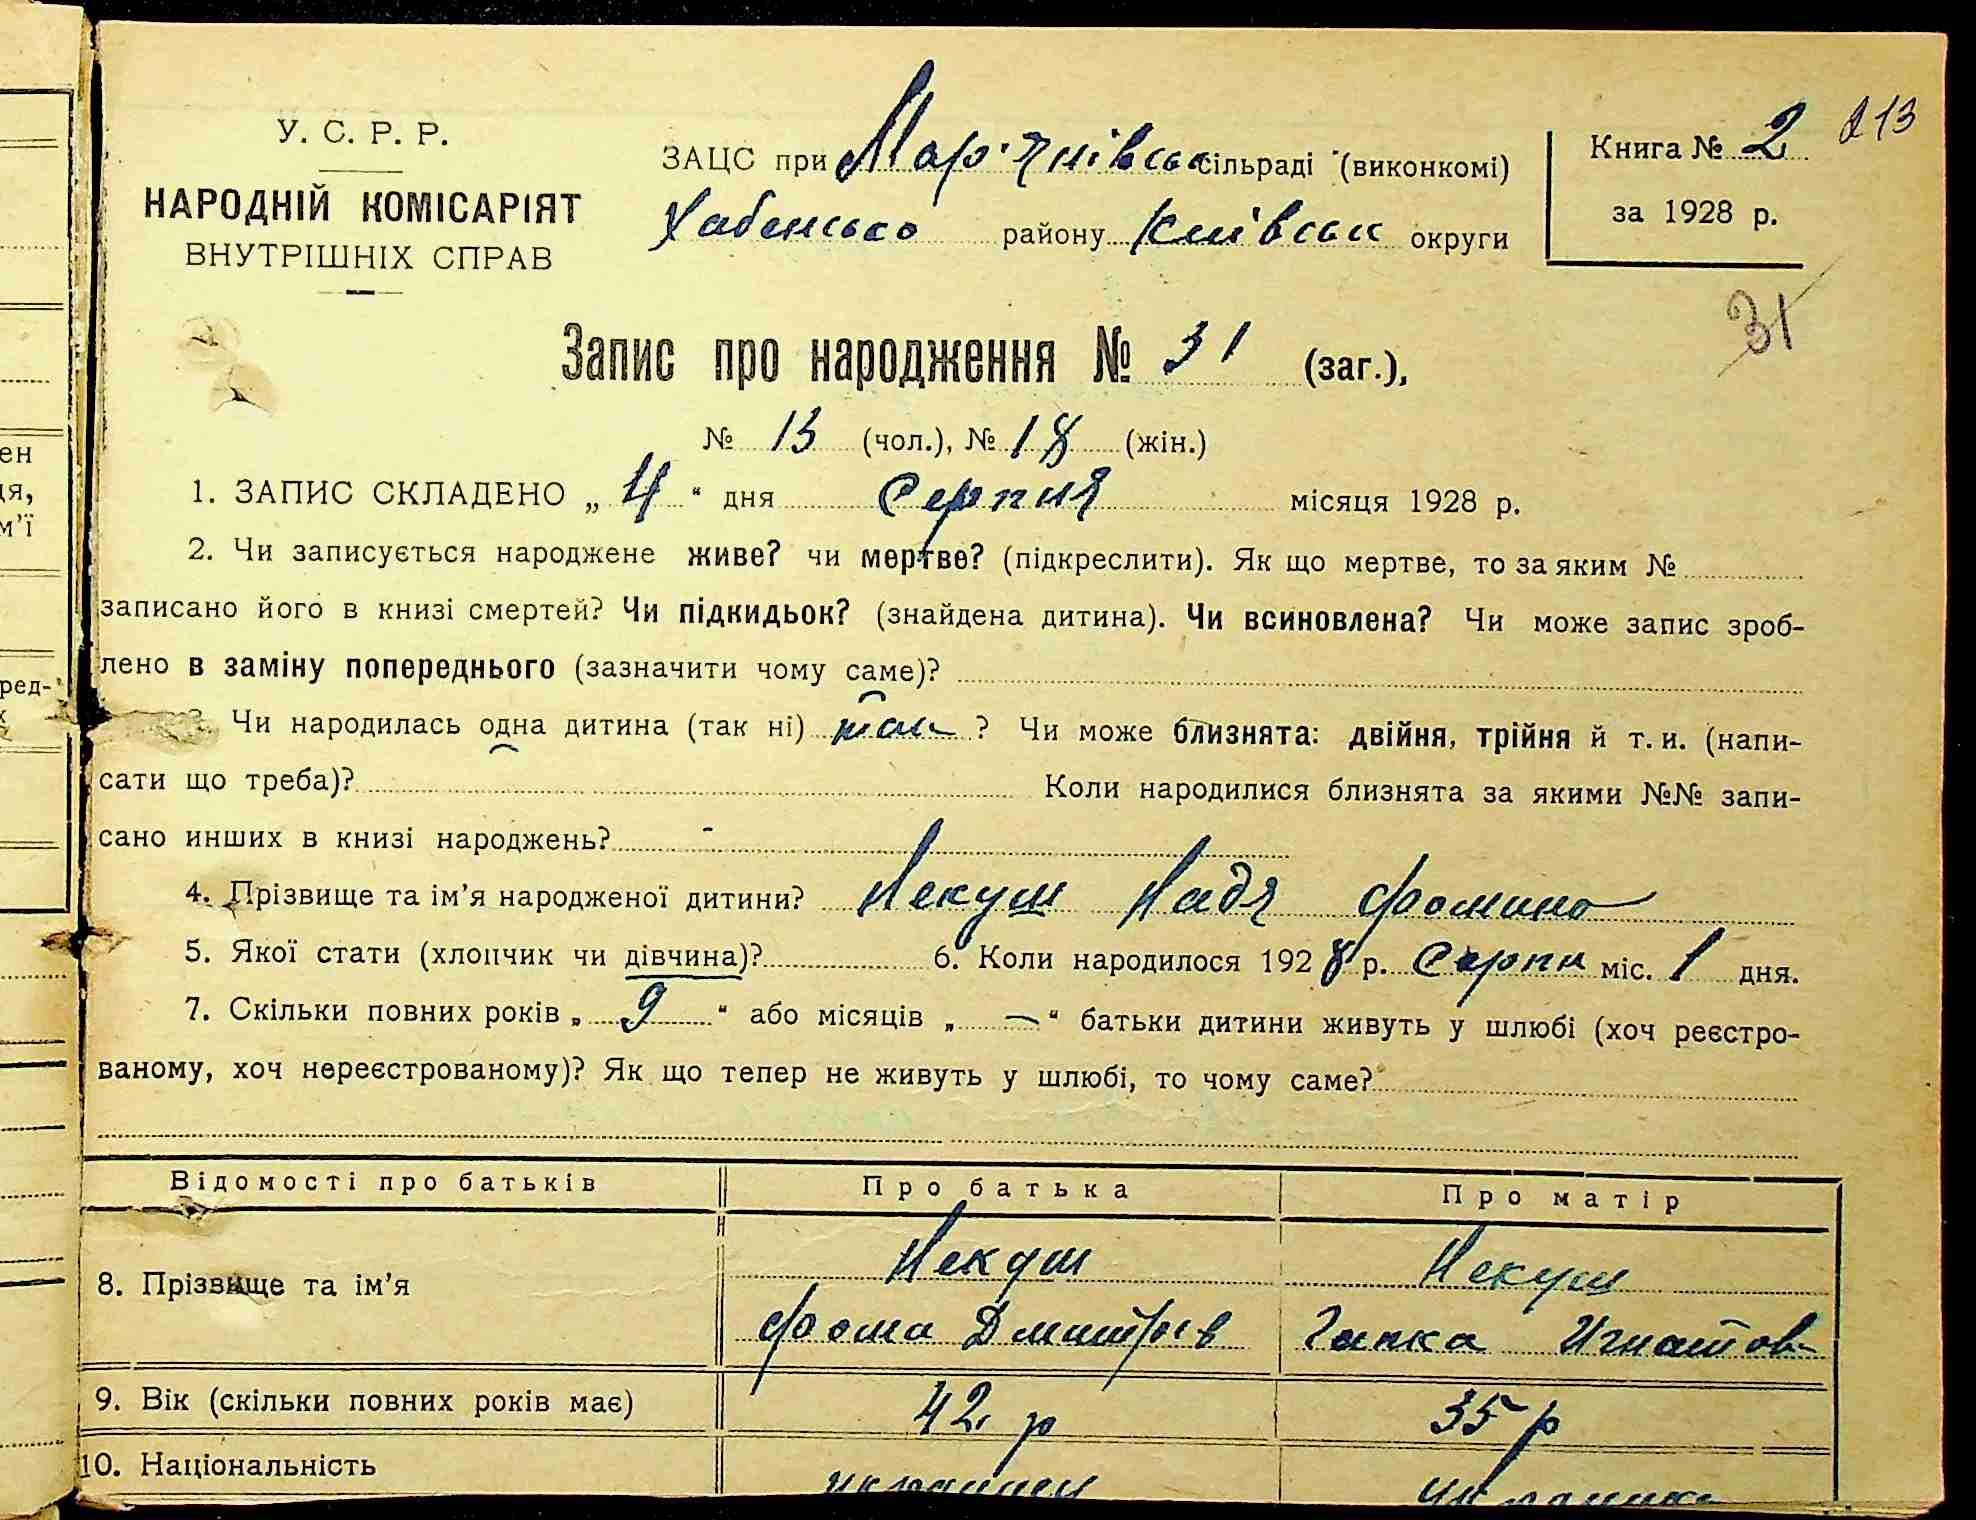 213
У. С. Р. Р.
НАРОДНІЙ КОМІСАРІЯТ
ВНУТРІШНІХ СПРАВ
ЗАЦС при Мар'янівськ сільраді (виконкомі)
Хабенсько району Київськ округи
Книга № 2
за 1928 р.
31
Запис про народження № 31 (заг.),
№ 13 (чол.), № 18 (жін.)
1. ЗАПИС СКЛАДЕНО „ 4 “ дня Серпня місяця 1928 р.
2. Чи записується народжене живе? чи мертве? (підкреслити). Як що мертве, то за яким №
записано його в книзі смертей? Чи підкидьок? (знайдена дитина). Чи всиновлена? Чи може запис зроб-
лено в заміну попереднього (зазначити чому саме)?
Чи народилась одна дитина (так ні) так ? Чи може близнята: двійня, трійня й т. и. (напи-
сати що треба)? Коли народилися близнята за якими №№ запи-
сано инших в книзі народжень? -
4. Прізвище та ім'я народженої дитини? Некуш Надя Фомино
5. Якої стати (хлопчик чи дівчина)? 6. Коли народилося 1928 р. Серпн міс. 1 дня.
7. Скільки повних років „ 9 “ або місяців „ — “ батьки дитини живуть у шлюбі (хоч реєстро-
ваному, хоч нереєстрованому)? Як що тепер не живуть у шлюбі, то чому саме?
Відомості про батьків Про батька Про матір
8. Прізвище та ім'я Некуш Некуш
Фома Дмитров Гапка Игнатов-
9. Вік (скільки повних років має) 42 р 35 р
10. Національність
ен
ія,
м'ї
ред-
х